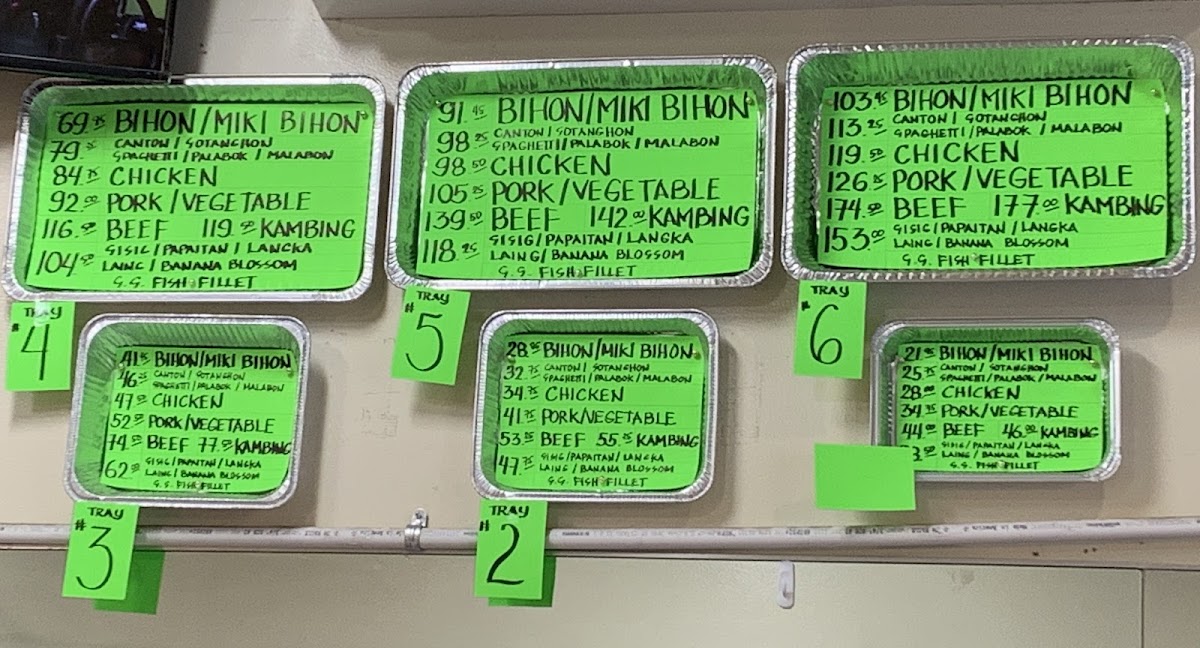 69.75 BIHON/MIKI BIHON
79.75 CANTON / SOTANGHON
SPAGHETTI / PALABOK / MALABON
84.75 CHICKEN
92.00 PORK / VEGETABLE
116.50 BEEF 119.50 KAMBING
SISIG / PAPAITAN / LANGKA
104.50 LAING / BANANA BLOSSOM
G.G. FISH FILLET
TRAY
#4
91.45 BIHON/MIKI BIHON
CANTON / SOTANGHON
98.25 SPAGHETTI / PALABOK / MALABON
98.50 CHICKEN
105.75 PORK / VEGETABLE
139.50 BEEF 142.00 KAMBING
SISIG / PAPAITAN / LANGKA
118.25 LAING / BANANA BLOSSOM
G.G. FISH FILLET
TRAY
#5
103.95 BIHON/MIKI BIHON
113.25 CANTON / SOTANGHON
SPAGHETTI / PALABOK / MALABON
119.50 CHICKEN
126.75 PORK / VEGETABLE
174.50 BEEF 177.00 KAMBING
SISIG / PAPAITAN / LANGKA
153.00 LAING / BANANA BLOSSOM
G.G. FISH FILLET
TRAY
#6
41.75 BIHON/MIKI BIHON
46.25 CANTON / SOTANGHON
SPAGHETTI / PALABOK / MALABON
47.50 CHICKEN
52.50 PORK/VEGETABLE
74.50 BEEF 77.50 KAMBING
SISIG / PAPAITAN / LANGKA
62.50 LAING / BANANA BLOSSOM
G.G. FISH FILLET
TRAY
#3
28.95 BIHON/MIKI BIHON
32.75 CANTON / SOTANGHON
SPAGHETTI / PALABOK / MALABON
34.75 CHICKEN
41.75 PORK/VEGETABLE
53.75 BEEF 55.75 KAMBING
SISIG / PAPAITAN / LANGKA
47.75 LAING / BANANA BLOSSOM
G.G. FISH FILLET
TRAY
#2
21.95 BIHON/MIKI BIHON
25.75 CANTON / SOTANGHON
SPAGHETTI / PALABOK / MALABON
28.00 CHICKEN
34.75 PORK/VEGETABLE
44.00 BEEF 46.00 KAMBING
SISIG / PAPAITAN / LANGKA
LAING / BANANA BLOSSOM
G.G. FISH FILLET